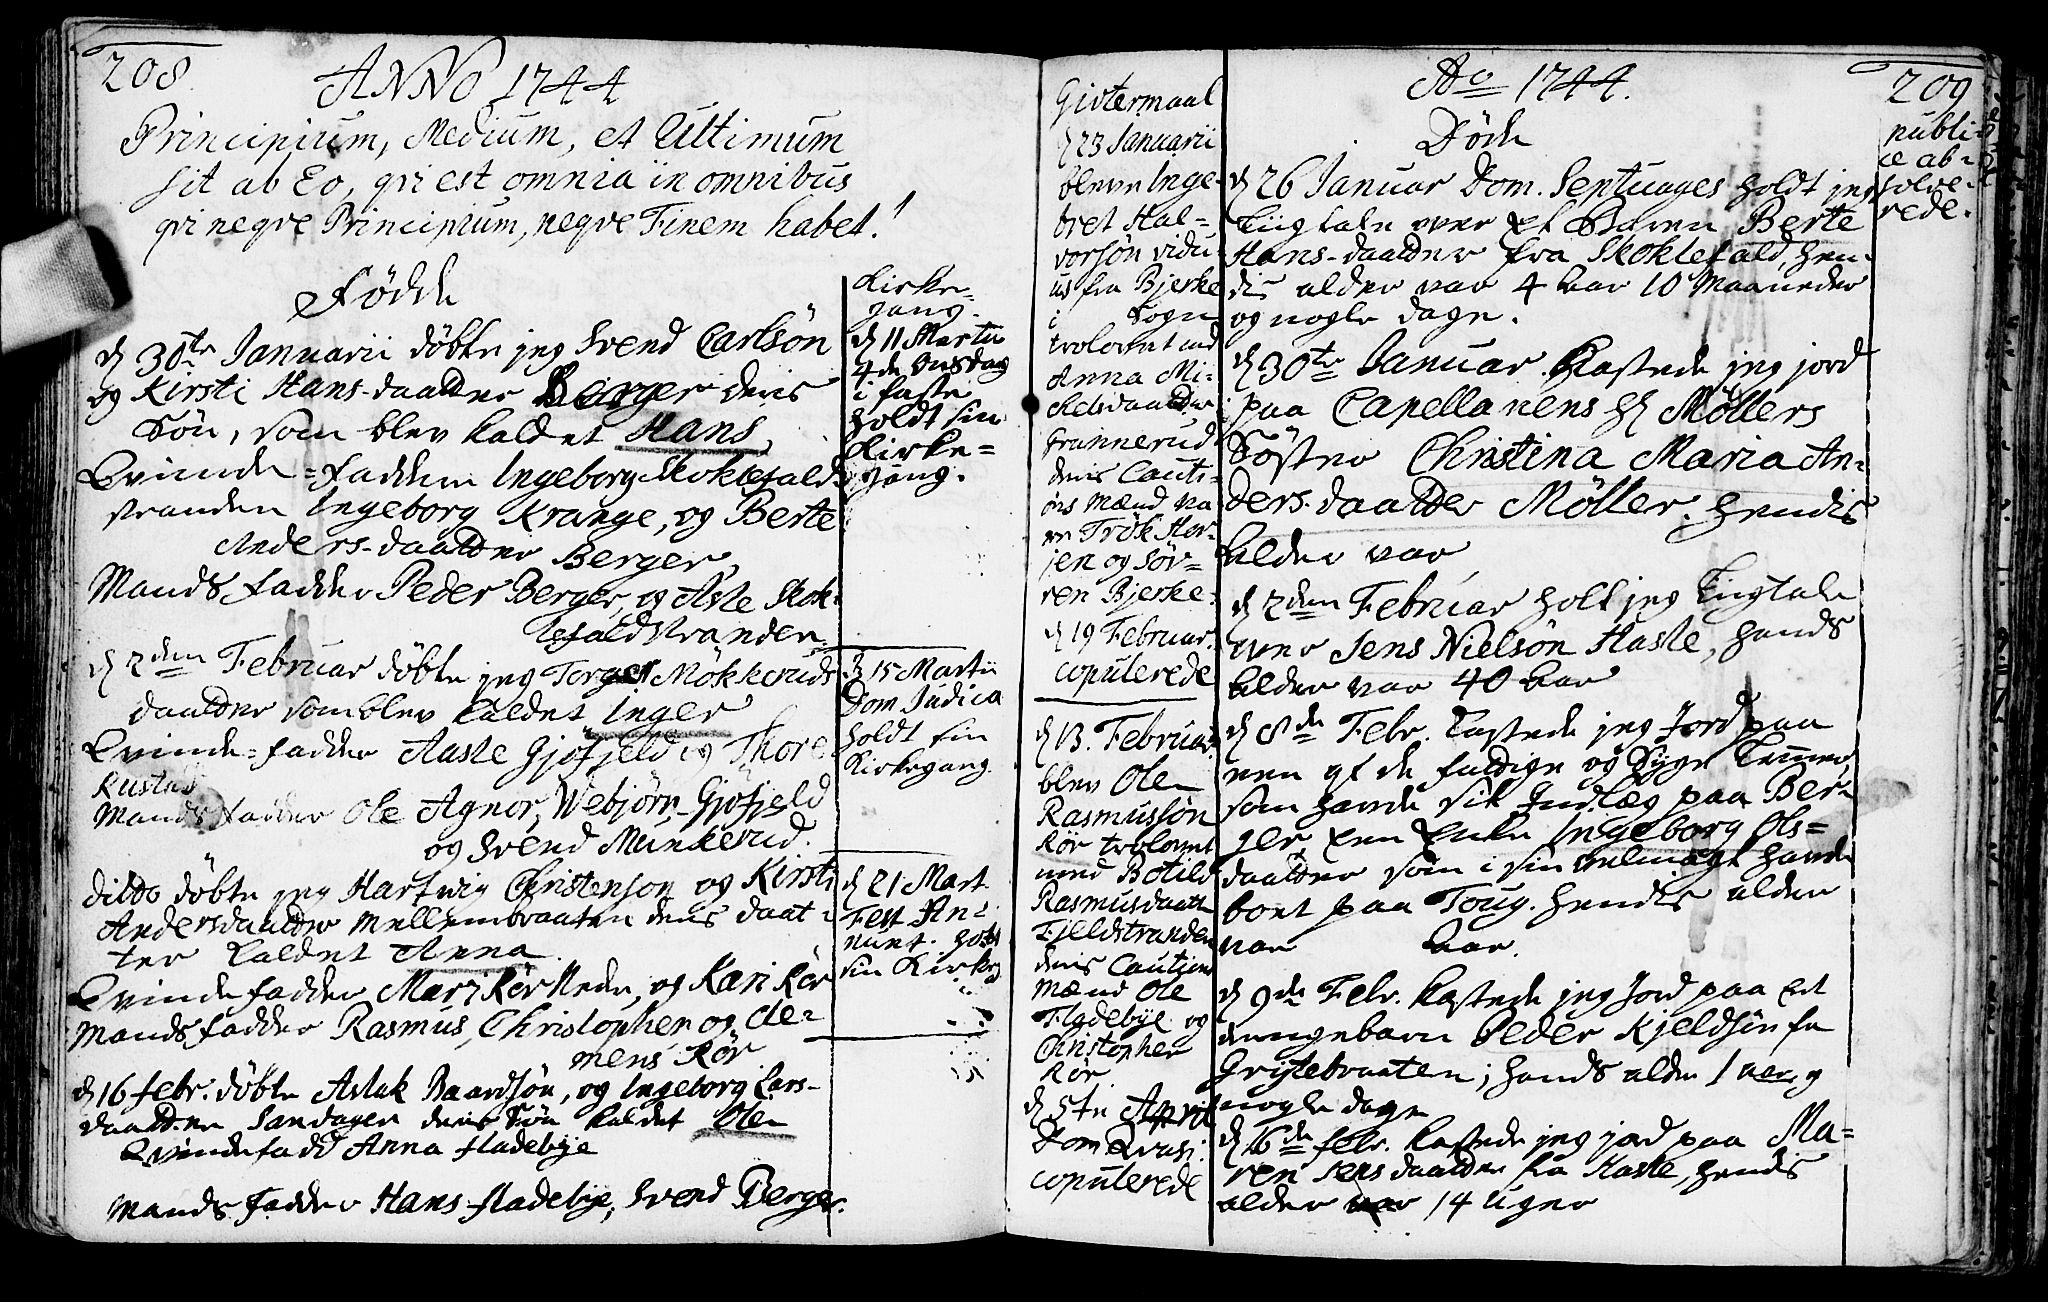 208
ANNO 1744
Principium, Medium, et Ultimum
sit ab Eo, qvi est omnia in omnibus
qvi neqve Principium, neqve Finem habet!
Fødde
d 30te Januarii døbte jeg Svend Carlsøn
og Kirsti Hans-daatter Berger deris
Søn, som blev kaldet Hans,
Qvinde-faddere Ingeborg Skoklefald-
stranden Ingeborg Krange, og Berte
Anders-daatter Berger,
Mands fadder Peder Berger, og Asle Skok-
lefaldstranden
d 2den Februar døbte jeg Torger Mökkeruds
daatter som blev kaldet Inger
Qvinde-fadder Aasle Gjøfjeld og Thore
Rustad
Mands fadder Ole Agnor, Webjørn Gjøfjeld
og Svend Munkerud.
dito døbte jeg Hartwig Christensøn og Kirsti
Andersdaatter Mellembraaten deris daat-
ter kaldet Anna
Qvinde fadder Mari Rør Nedre, og Kari Rør
Mands fadder Rasmus, Christopher og Cle-
mens Rør
d 16 febr. døbte Aslak Baardsøn, og Ingeborg Lars-
daatter Sandager deris Søn kaldet Ole
Qvindefadd Anna fladebye
Mands fadder Hans fladebye, Svend Berger.
Kirke-
gang.
d 11 Martii
4de Onsdag
i faste
holdt sin
Kirke-
gang.
d 15 Martii
Dom Judica
holdt sin
Kirkegang
d 21 Mart
Fest An-
nunt. holdt
sin Kirkeg
Givtermaal
d 23 Januarii
bleve Inge-
bret Hal-
vorsøn vidu-
us fra Bjerke
i Sogn
trolovet med
Anna Mi-
chelsdaatter
Grannerud
deris Cauti-
ons Mænd va-
re Trök Har-
jen og Sør-
ren Bjerke.
d 19 Februar.
copulerede
d 13. Februar
blev Ole
Rasmussøn
Rør trolovet
med Botild
Rasmusdaatt
Fjeldstranden
deris Cautions
Mænd Ole
Fladebye og
Christopher
Rør.
d 5te April
Dom Qvasi
copulerede
Ao 1744.
Døde
d 26 Januar Dom. Septuages holdt jeg
Liigtale over et Barn Berte
Hans-daatter fra Skoklefald, hen-
dis alder var 4 Aar 10 Maaneder
og nogle dage.
d 30te Januar. Kastede jeg jord
paa Capellanens Hr Møllers
Søster Christina Maria An-
ders-daatter Møller. hendis
Alder var
d 2den Februar holt jeg Liigtale
over Jens Nielsøn Hasle, hands
Alder var 40 Aar
d 8de Febr. Kastede jeg Jord paa
een af de fattige og Syge Lemmer,
som havde sit Indlæg paa Ber-
ger een Enke Ingeborg Ols-
daatter som i sin velmagt havde
boet paa Toug. hendis alder
var Aar.
d 9de Febr. kastede jeg Jord paa et
drengebarn Peder Kjeldsøn fra
Gristebraaten; hands alder 1 aar og
nogle dage
d 16de febr. kastede jeg jord paa Ma-
ren Jens daatter fra Hasle, hendis
alder var 14 Uger
209
publi-
ce ab-
solve-
rede.